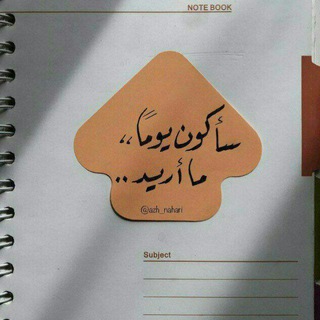 NOTE BOOK
سأكون يومًا،،
ما أريد..
@ach_nahari
Subject